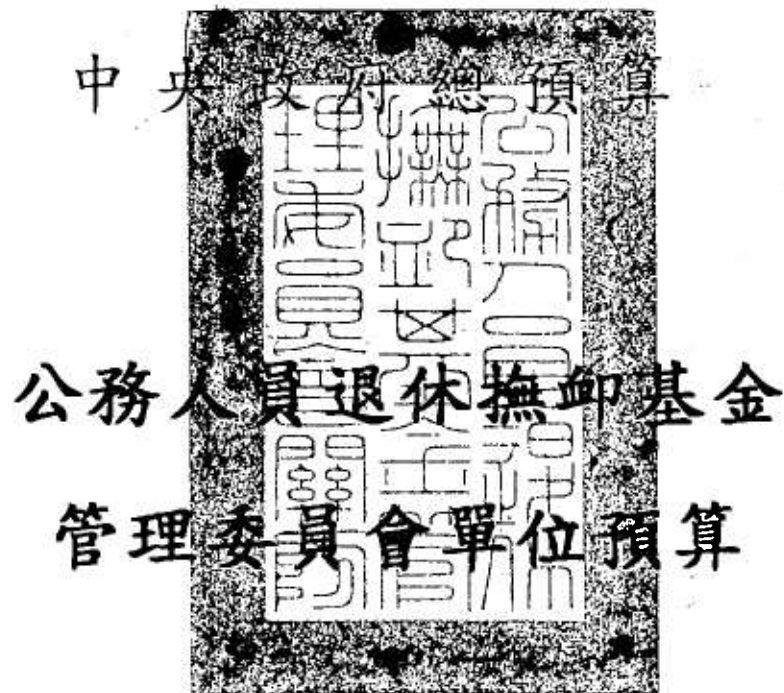 中央政府總預算
公務人員退休撫卹基金
管理委員會單位預算
公務人員退休
撫卹基金管
理委員會關防